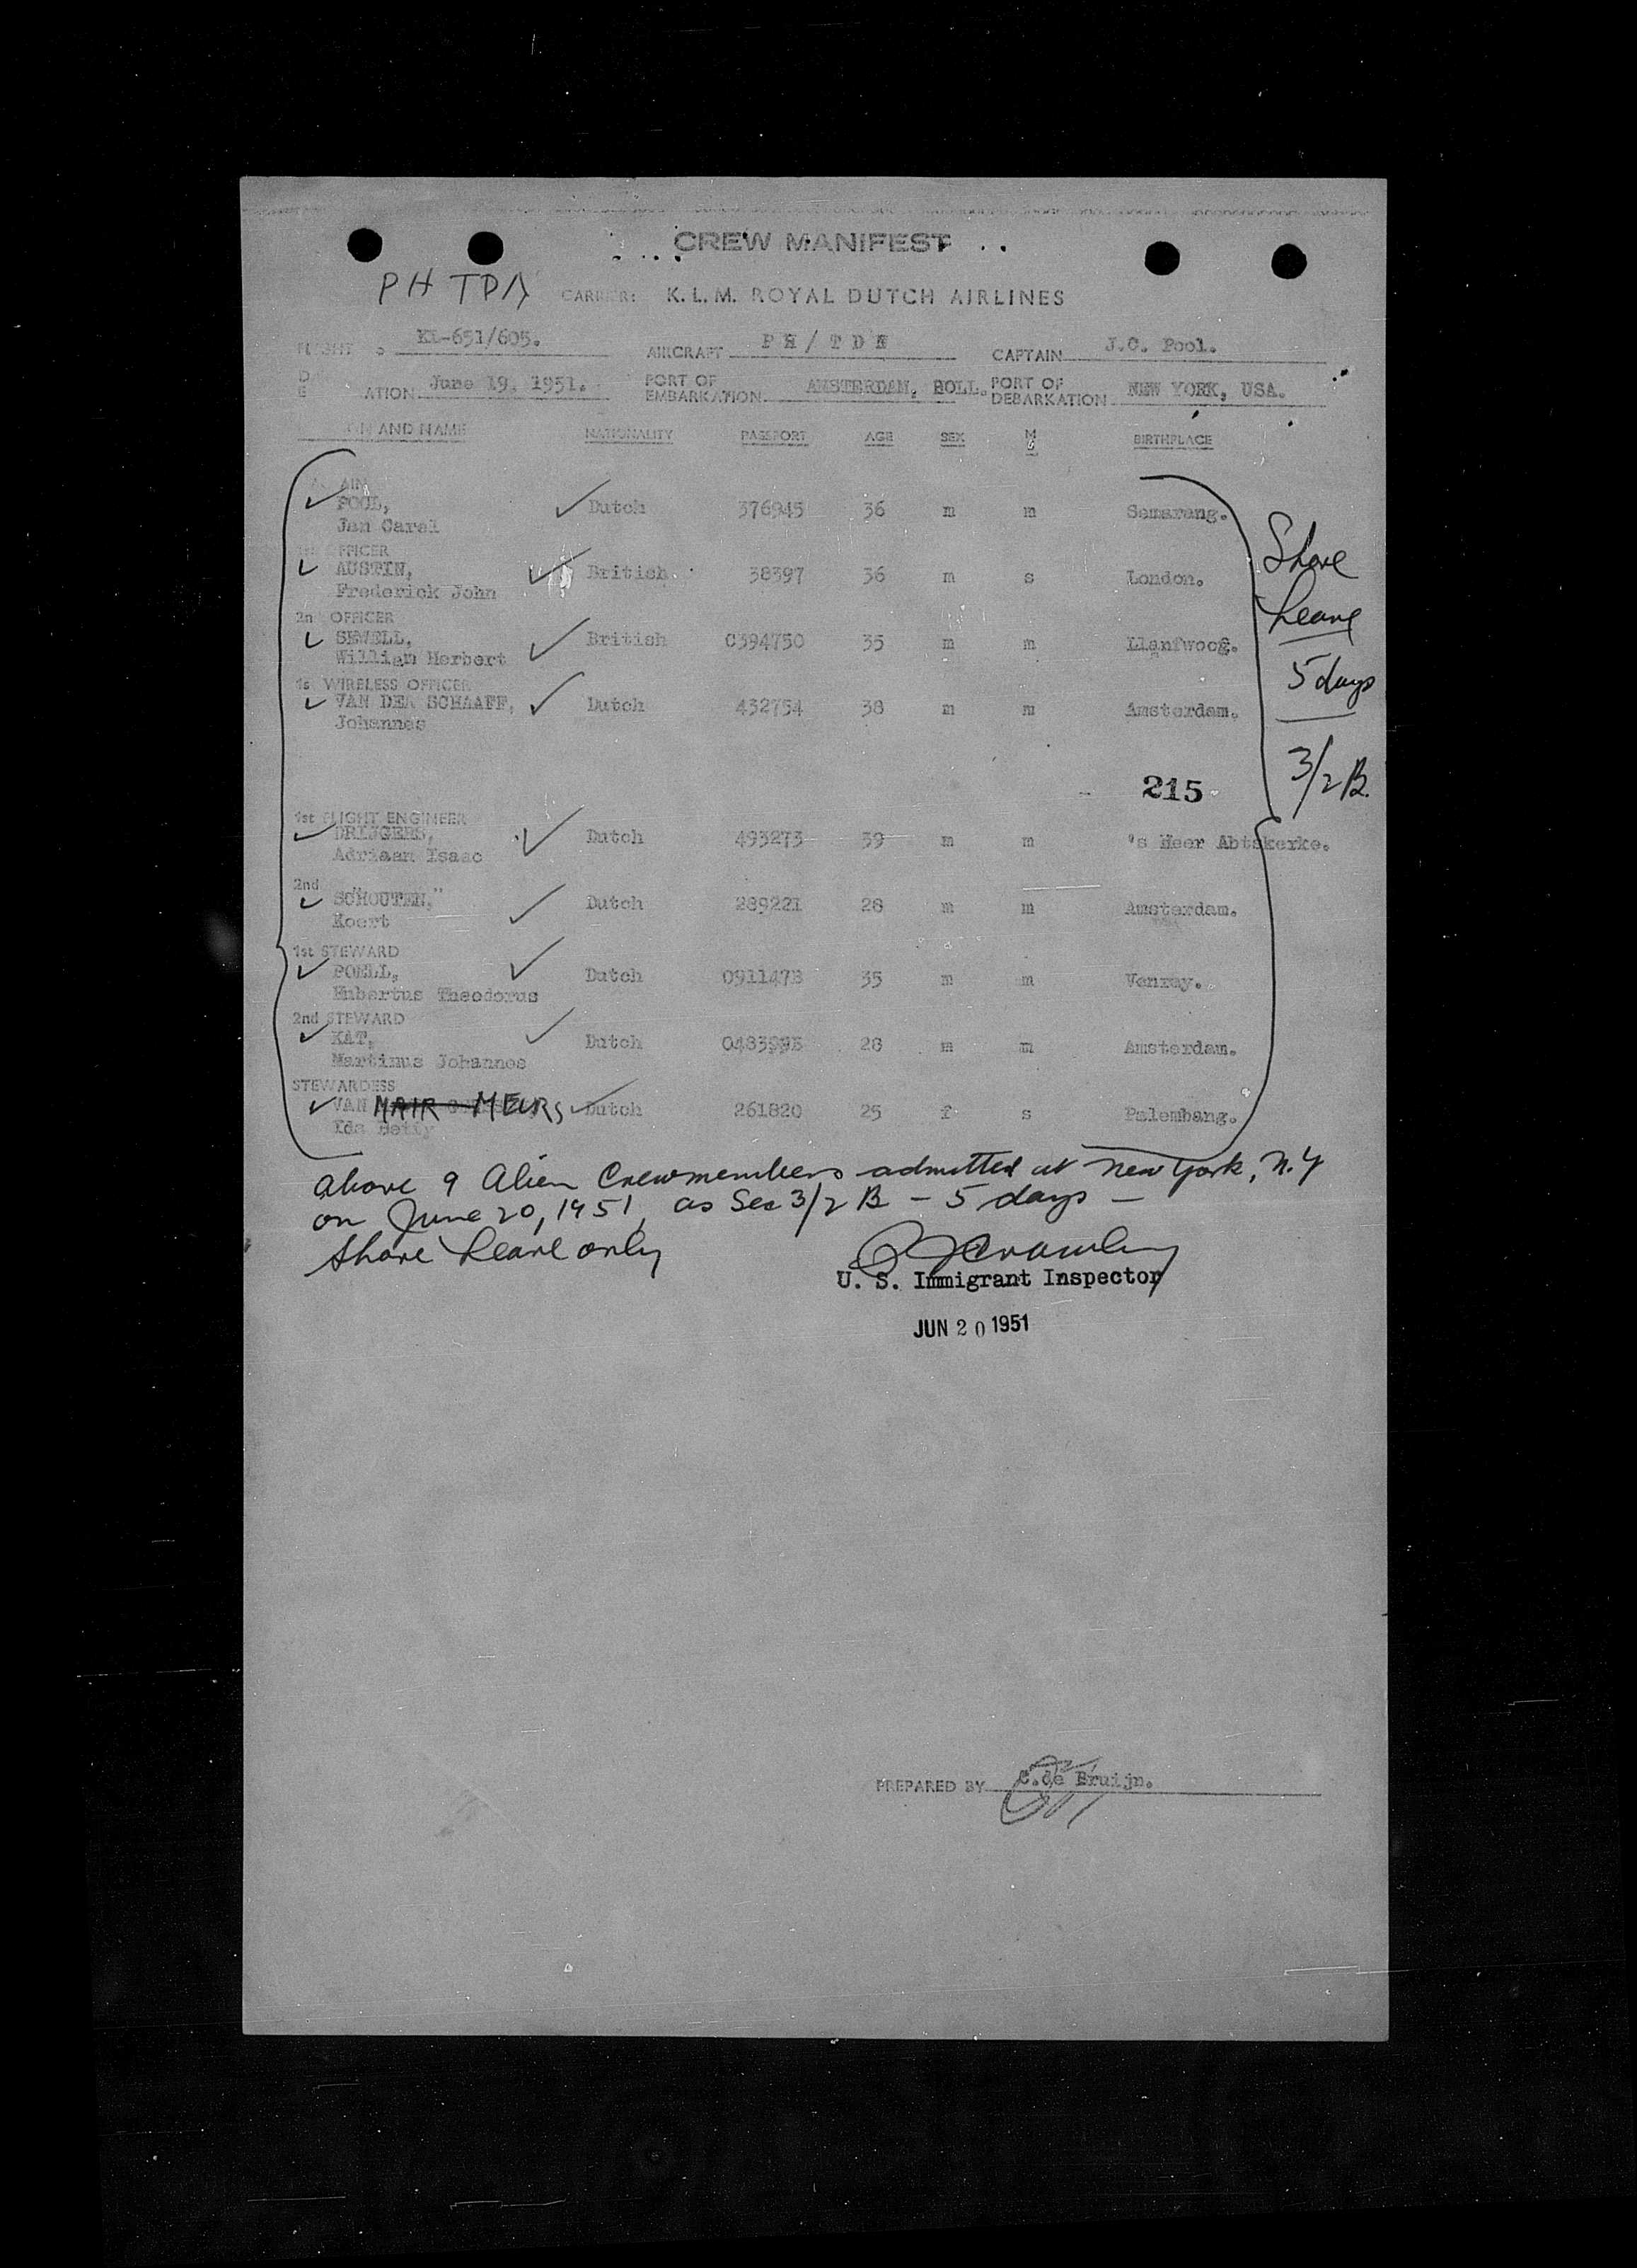 CREW MANIFEST
PH TDA CARRIER: K. L. M. ROYAL DUTCH AIRLINES
FLIGHT KL-651/605. AIRCRAFT PH / TDH CAPTAIN J.C. Pool.
ATION June 19, 1951. PORT OF EMBARKATION AMSTERDAM, HOLL. PORT OF DEBARKATION NEW YORK, USA.
AND NAME NATIONALITY PASSPORT AGE SEX M S BIRTHPLACE
AIN
POOL, Dutch 376945 36 m m Semarang.
Jan Carel
OFFICER
AUSTIN, British 38397 36 m s London.
Frederick John
2n OFFICER
SEWELL, British C394750 35 m m
William Herbert
1s WIRELESS OFFICER
VAN DER SCHAAFF, Dutch 432754 38 m m Amsterdam.
Johannes
Shore
Leave
5 days
3/2 B.
215
1st FLIGHT ENGINEER
DRIJGERS, Dutch 493273 39 m m 's Heer Abtskerke.
Adriaan Isaac
2nd "
SCHOUTEN, Dutch 289221 28 m m Amsterdam.
Koert
1st STEWARD
POELL, Dutch 35 m m Venray.
Hubertus Theodorus
2nd STEWARD
KAT, Dutch 28 m m Amsterdam.
Martinus Johannes
STEWARDESS
VAN MEURS Dutch 261820 25 f s Palembang.
Ida Betty
above 9 Alien Crewmembers admitted at New York, N.Y
on June 20, 1951, as Sec 3/2 B - 5 days -
Shore Leave only
U. S. Immigrant Inspector
JUN 20 1951
PREPARED BY C.de Bruijn.